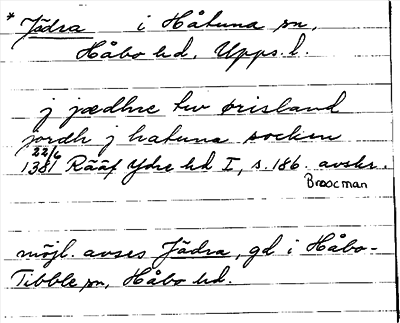 * Jädra i Håtuna sn,
Håbo hd, Upps. l.
j jædhre tw ørisland
jordh j hatuna sockn
22/6
1381 Rääf Ydre hd I, s. 186. avskr.
Broocman
möjl. avses Jädra, gd i Håbo-
Tibble sn, Håbo hd.